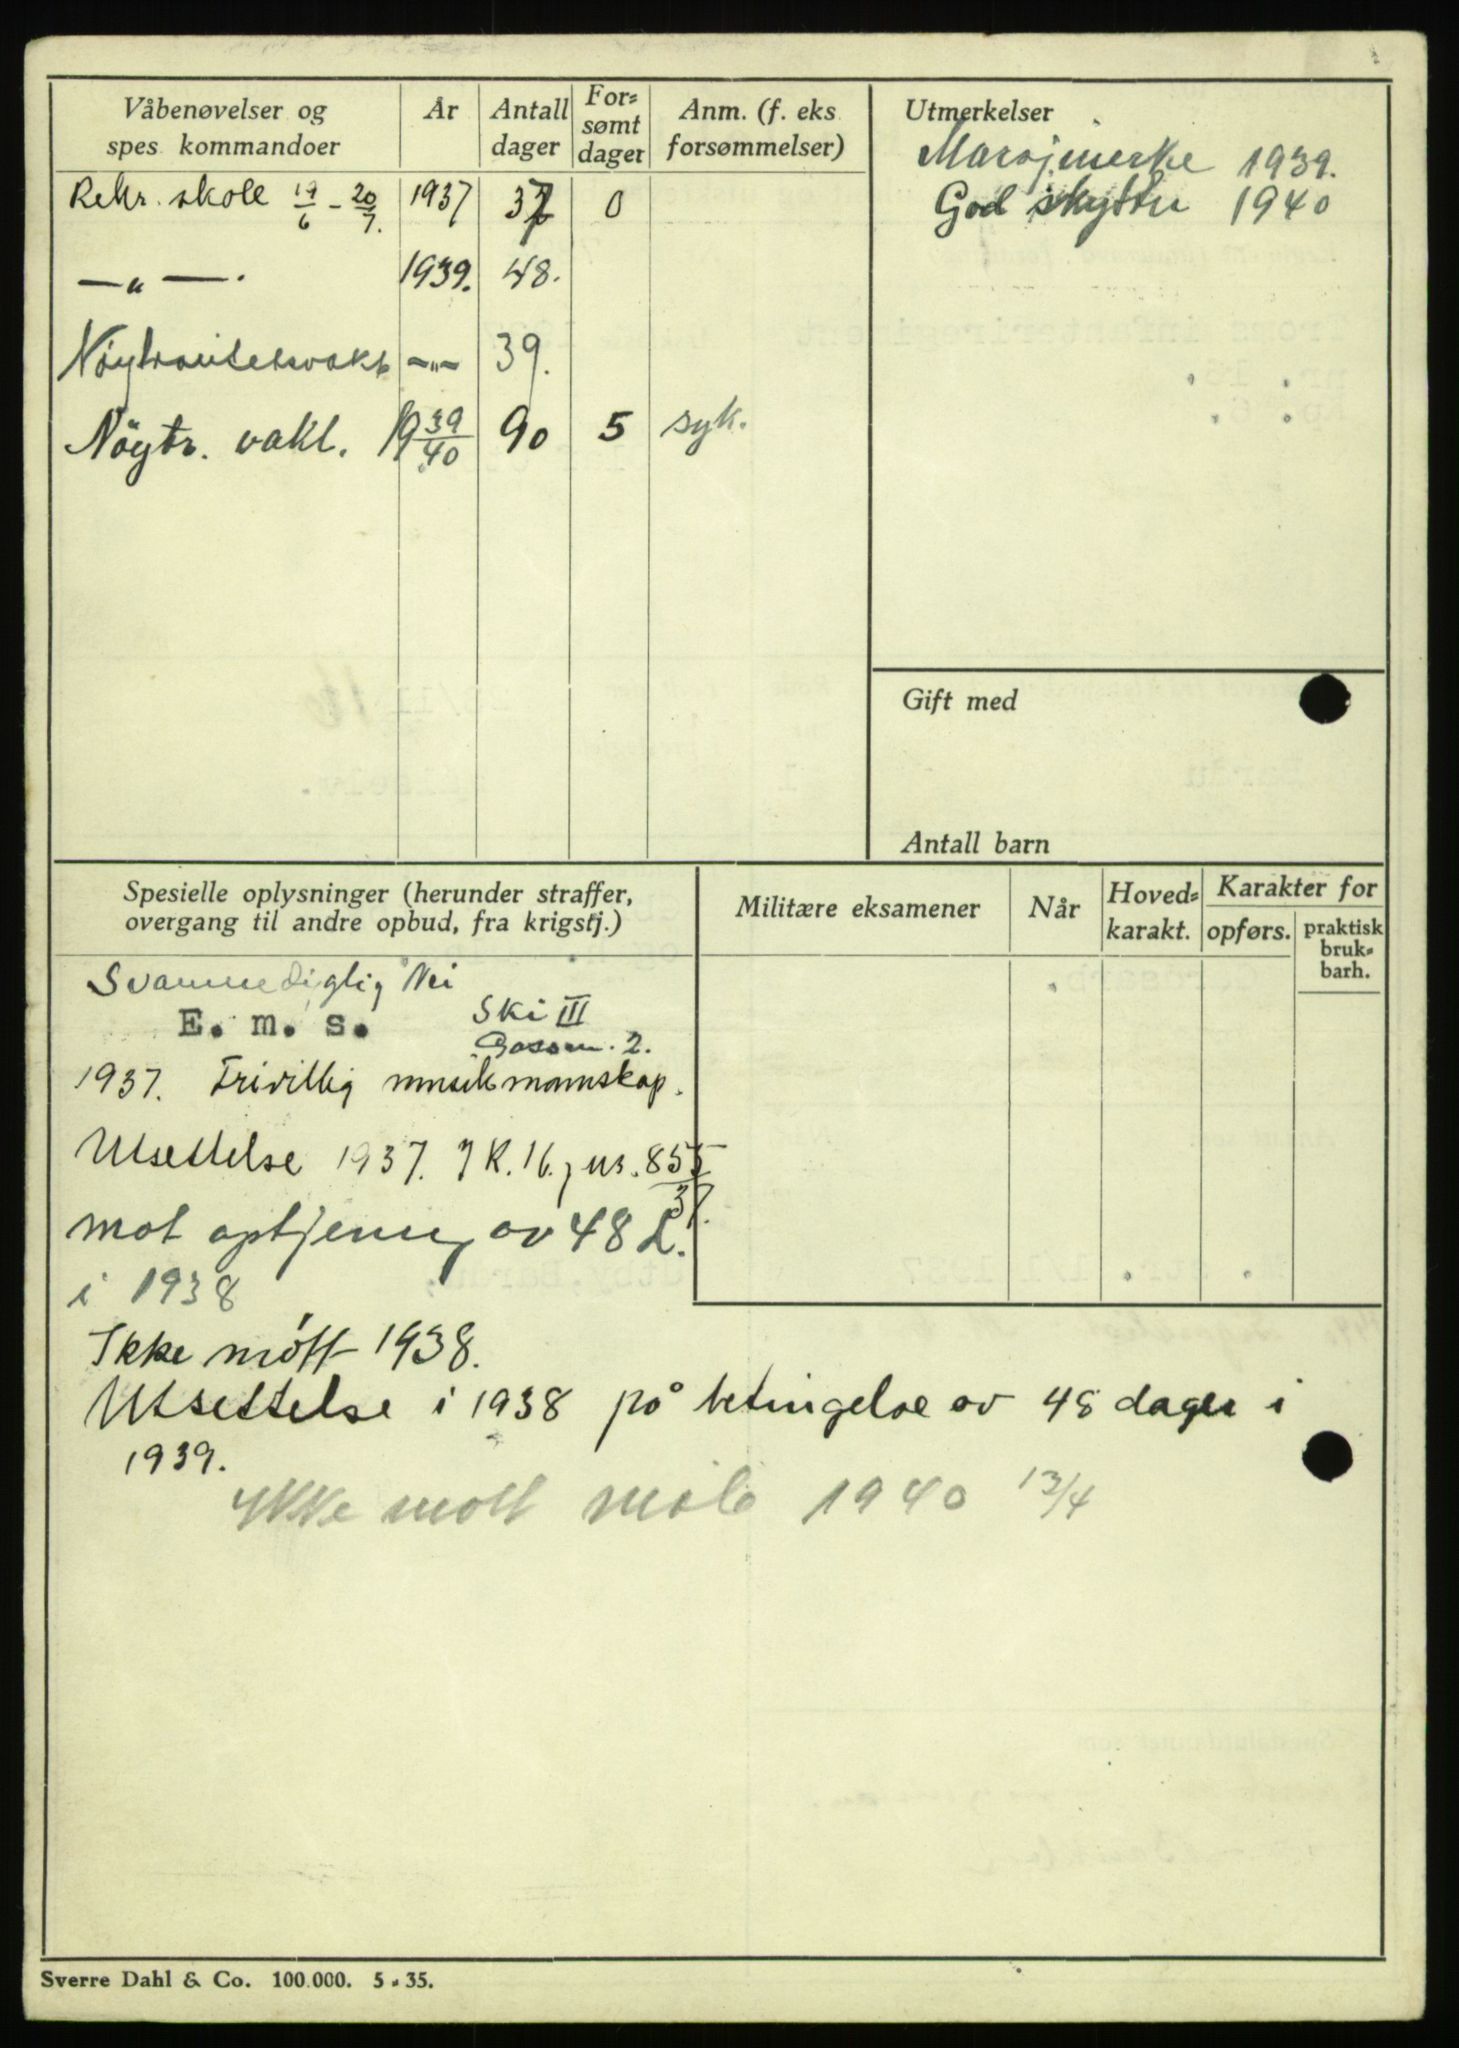 Våbenøvelser og
spes. kommandoer
År
Antall
dager
For-
sømt
dager
Anm. (f. eks
forsømmelser)
Rekr. skole 17/6 - 20/7. 1937 0
—„—. 1939. 48.
Nøytralitetsvakt —„— 39.
Nøytr. vakt. 19 39/40 90 5 syk.
Utmerkelser
Marsjmerke 1939.
God skytter 1940
Gift med
Antall barn
Spesielle oplysninger (herunder straffer,
overgang til andre opbud, fra krigstj.)
Svømmedygtig Nei
E. m. s.
Ski III
Gassm. 2.
1937. Frivillig musikmannskap.
Utsettelse 1937. J K. 16, nr. 855/37.
mot optjening av 48 d.
i 1938
Ikke møtt 1938.
Utsettelse i 1938 på betingelse av 48 dager i
1939.
Ikke møtt mob 1940 13/4
Militære eksamener
Når
Hoved-
karakt.
Karakter for
opførs.
praktisk
bruk-
barh.
Sverre Dahl & Co. 100.000. 5 - 35.